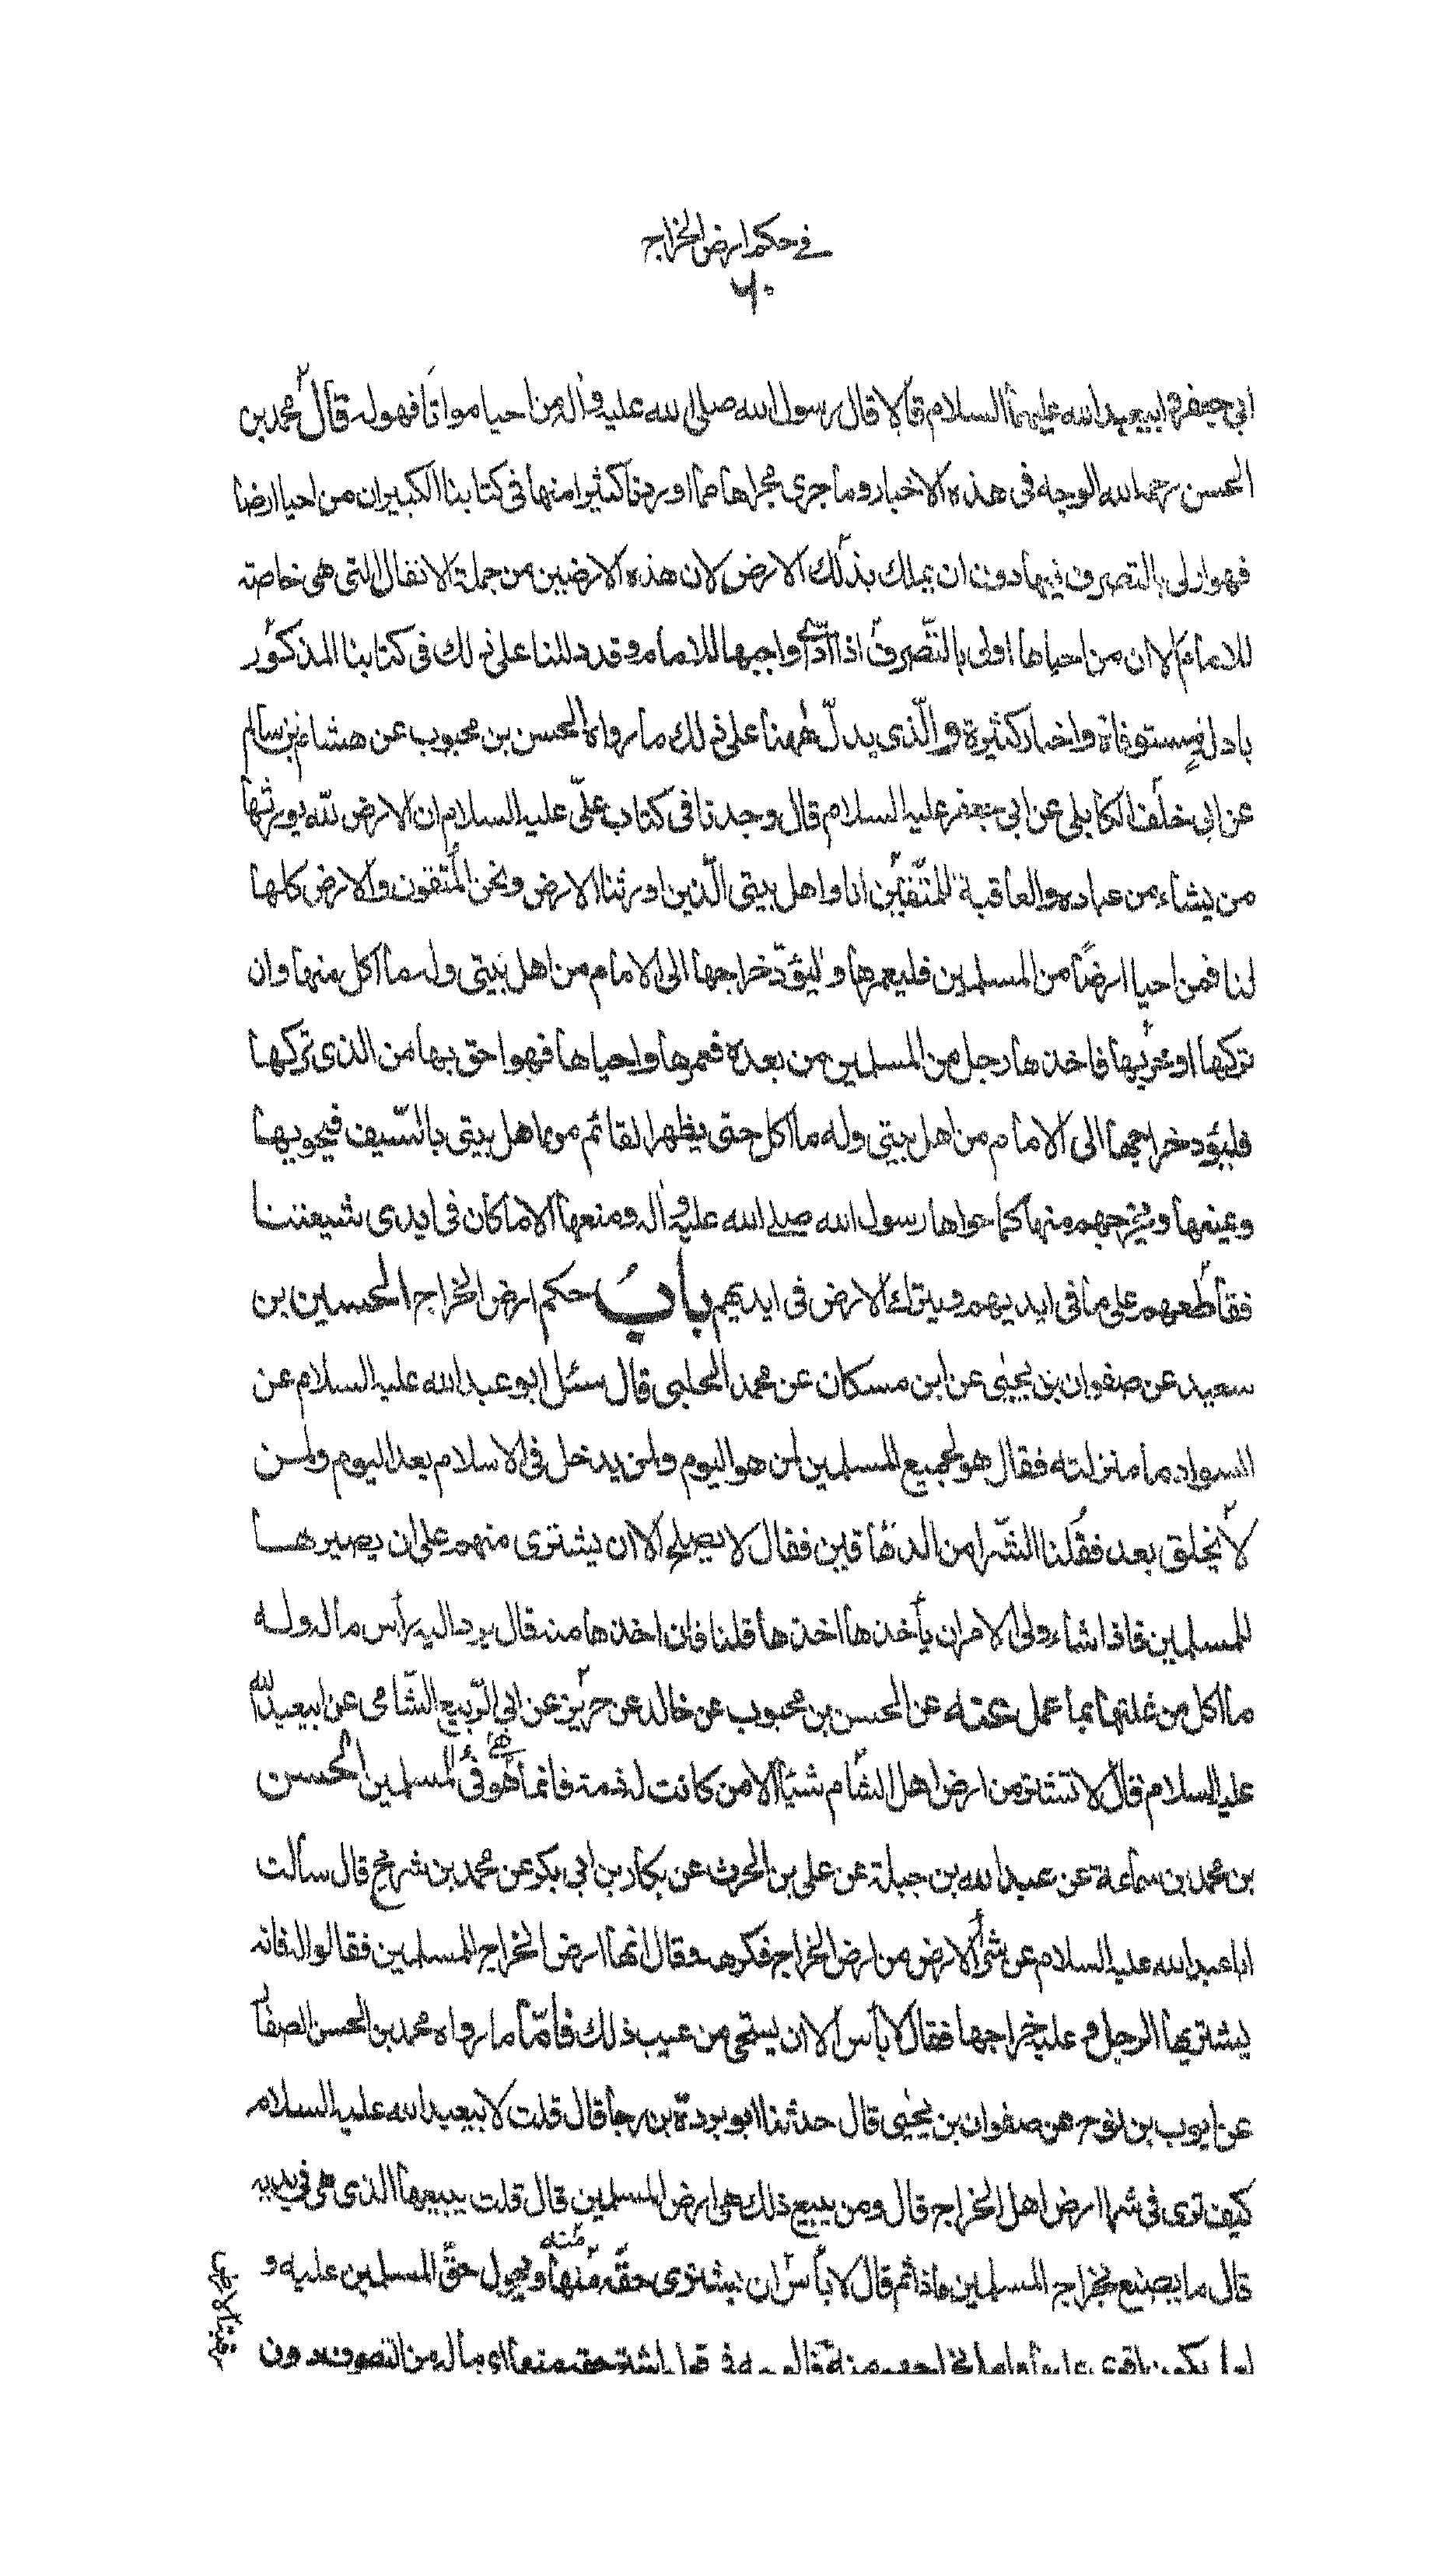 في حكم ارض الخراج
٦٠
ابي جعفر وابيعبد الله عليهما السلام قالا قال رسول الله صلى الله عليه واله من احيا مواتا فهو له قال محمد بن
الحسن رحمه الله الوجه فى هذه الاخبار وما جرى مجراها مما اوردنا كثيرا منها فى كتابنا الكبير ان من احيا ارضا
فهو اولى بالتصرف فيها دون ان يملك بذلك الارض لان هذه الارضين من جملة الانفال التى هى خاصة
للامام الا ان من احياها اولى بالتصرف اذا ادى واجبها للامام وقد دللنا على ذلك فى كتابنا المذكور
بادلة مستوفاة واخبار كثيرة والذى يدل ههنا على ذلك ما رواه الحسن بن محبوب عن هشام بن سالم
عن ابي خلف الكابلى عن ابي جعفر عليه السلام قال وجدنا فى كتاب على عليه السلام ان الارض لله يورثها
من يشاء من عباده والعاقبة للمتقين انا واهل بيتى الذين اورثنا الارض ونحن المتقون والارض كلها
لنا فمن احيا ارضا من المسلمين فليعمرها وليؤد خراجها الى الامام من اهل بيتى وله ما اكل منها وان
تركها او خربها فاخذها رجل من المسلمين من بعده فعمرها واحياها فهو احق بها من الذى تركها
فليؤد خراجها الى الامام من اهل بيتى وله ما اكل حتى يظهر القائم من اهل بيتى بالسيف فيحويها
ويمنعها ويخرجهم منها كما حواها رسول الله صلى الله عليه واله ومنعها الا ما كان فى ايدى شيعتنا
فقاطعهم على ما فى ايديهم ويترك الارض فى ايديهم باب حكم ارض الخراج الحسين بن
سعيد عن صفوان بن يحيى عن ابن مسكان عن محمد الحلبى قال سئل ابو عبد الله عليه السلام عن
السواد ما منزلته فقال هو لجميع المسلمين لمن هو اليوم ولمن يدخل فى الاسلام بعد اليوم ولمن
لا يخلق بعد فقلنا الشرا من الدهاقين فقال لا يصلح الا ان يشترى منهم على ان يصيرها
للمسلمين فاذا شاء ولى الامر ان يأخذها اخذها قلنا فان اخذها منه قال يرد اليه رأس ماله وله
ما اكل من غلتها بما عمل عنه الحسن بن محبوب عن خالد عن جرير عن ابي الربيع الشامى عن ابيعبد الله
عليه السلام قال لا تشتر من ارض اهل الشام شيئا الا من كانت له ذمة فانما هو فئ المسلمين الحسن
بن محمد بن سماعة عن عبد الله بن جبلة عن على بن الحرث عن بكار بن ابى بكر عن محمد بن شريح قال سألت
ابا عبد الله عليه السلام عن شرى الارض من ارض الخراج فكرهه وقال انما ارض الخراج للمسلمين فقالوا له فانه
يشتريها الرجل وعليه خراجها فقال لا بأس الا ان يستحى من عيب ذلك فأما ما رواه محمد بن الحسن الصفار
عن ايوب بن نوح عن صفوان بن يحيى قال حدثنا ابو بردة بن رجا قال قلت لابيعبد الله عليه السلام
كيف ترى فى شرا ارض اهل الخراج قال ومن يبيع ذلك هى ارض المسلمين قال قلت يبيعها الذى هى فى يديه
قال ما يصنع بخراج المسلمين ماذا ثم قال لا بأس ان يشترى حقه منها ويحول حق المسلمين عليه و
منه
لعله يكون اقوى عليها واملى بخراجهم منه فالوجه فى قوله اشتر حقه منها اى ماله من التصرف دون
رقبة الارض